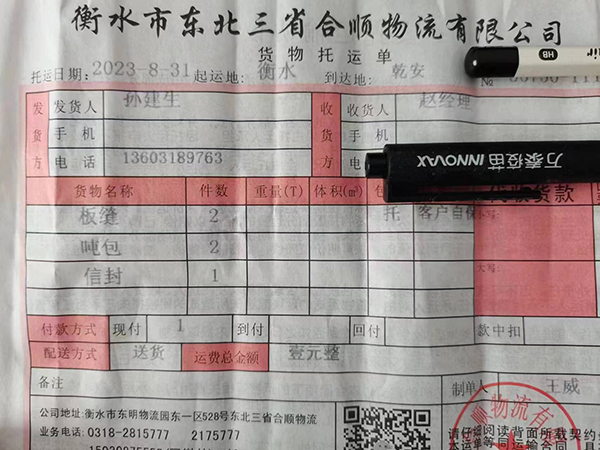 衡水市东北三省合顺物流有限公司
货物托运单
托运日期: 2023-8-31 起运地: 衡水 到达地: 乾安 №
HB
发货方 发货人 孙建生 收货方 收货人 赵经理
手机 手机
电话 13603189763 电话
万泰疫苗 INNOVAX
货物名称 件数 重量(T) 体积(m³) 代收货款
板缝 2 托 客户自保
吨包 2 大写:
信封 1
付款方式 现付 1 到付 回付 款中扣
配送方式 送货 运费总金额 壹元整
备注 制单人 王威
公司地址:衡水市东明物流园东一区528号东北三省合顺物流
业务电话: 0318-2815777 2175777
顺物流有
请仔细阅读背面所载契约
本运单等同运输合同